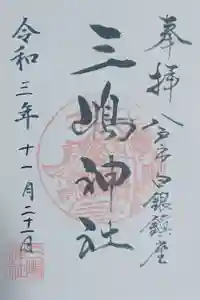 奉拝
八戸市白銀鎮座
三嶋神社
令和三年十一月二十一日